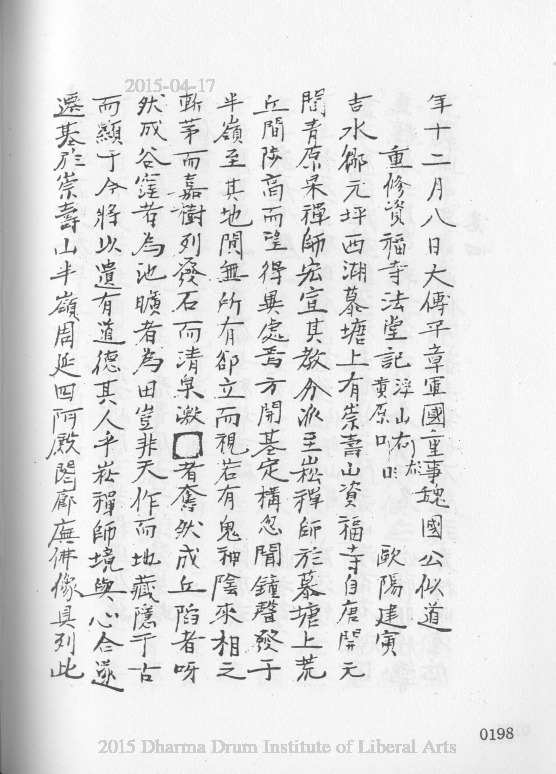 2015-04-17
年十二月八日大傅平章軍國重事魏國公似道
重修資福寺法堂記 浮山右 黄原 歐陽建寅
吉水鄒元坪西湖慕塘上有崇壽山資福寺自唐開元
間青原杲禪師宏宣其教分派至崧禪師於慕塘上荒
丘間陟高而望得異處焉方開基定構忽聞鐘聲發于
半嶺至其地閴無所有卻立而視若有鬼神陰來相之
斬茅而嘉樹列發石而清泉潄□者奮然成丘陷者呀
然成谷窪若為池曠者為田豈非天作而地藏隱于古
而顯于今將以遺有道德其人乎崧禪師境與心合遂
遷基於崇壽山半嶺周延四阿殿閣廊廡佛像具列此
0198
2015 Dharma Drum Institute of Liberal Arts